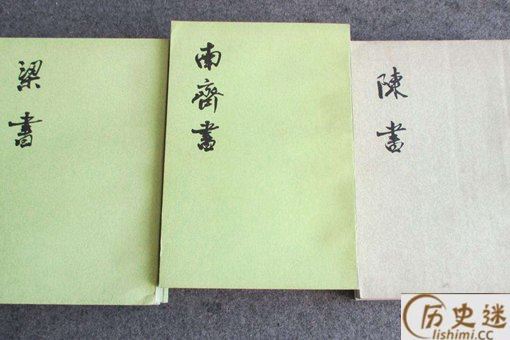 梁書
南齊書
陳書
历史迷
lishimi.cc